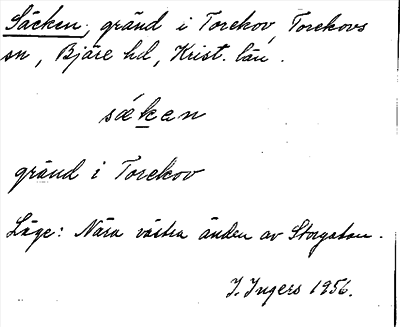 Säcken, gränd i Torekov, Torekovs
sn, Bjäre hd, Krist. län.
säken
gränd i Torekov
Läge: Nära västra änden av Storgatan.
I. Ingers 1956.